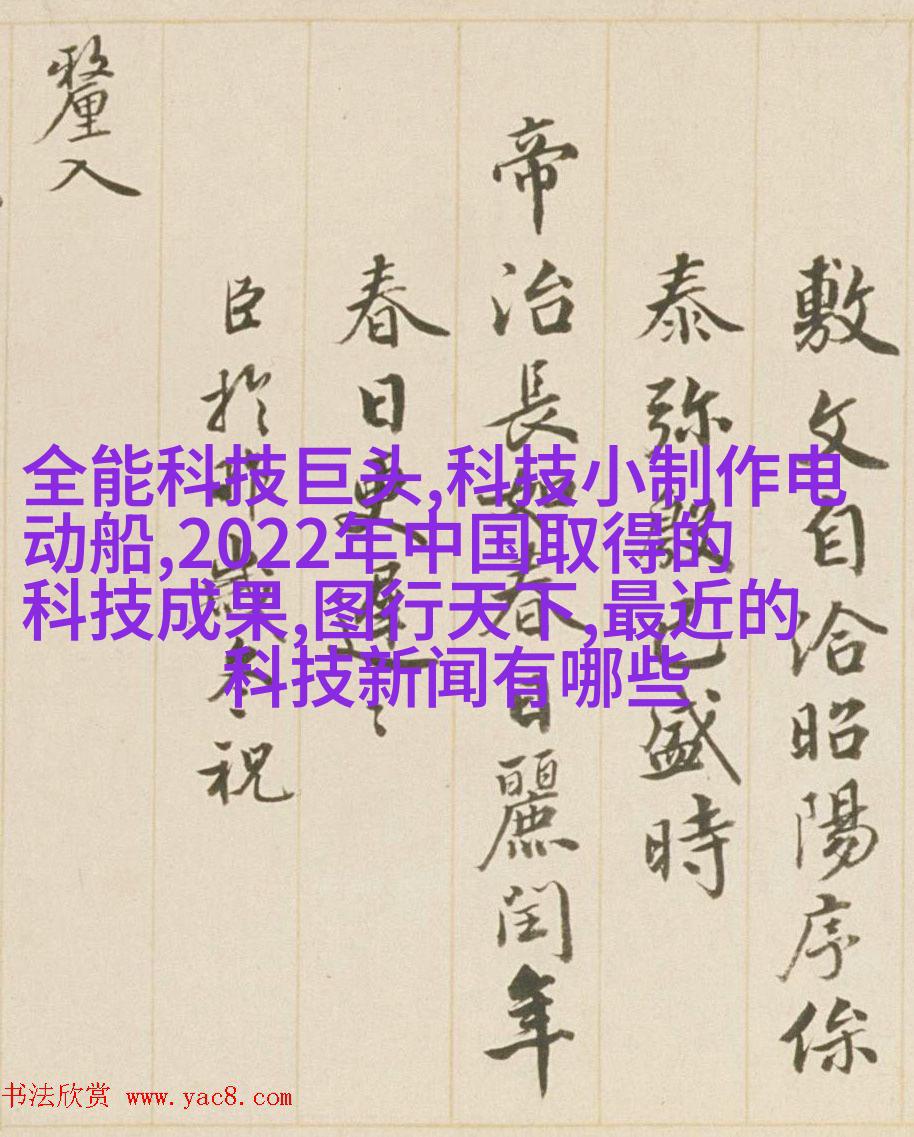 敷文自洽昭陽序
泰弥已盛時
帝治長如春日麗閏年
春日更遲〻
臣於歲祝
釐入
全能科技巨头,科技小制作电
动船,2022年中国取得的
科技成果,图行天下,最近的
科技新闻有哪些
书法欣赏 www.yac8.com